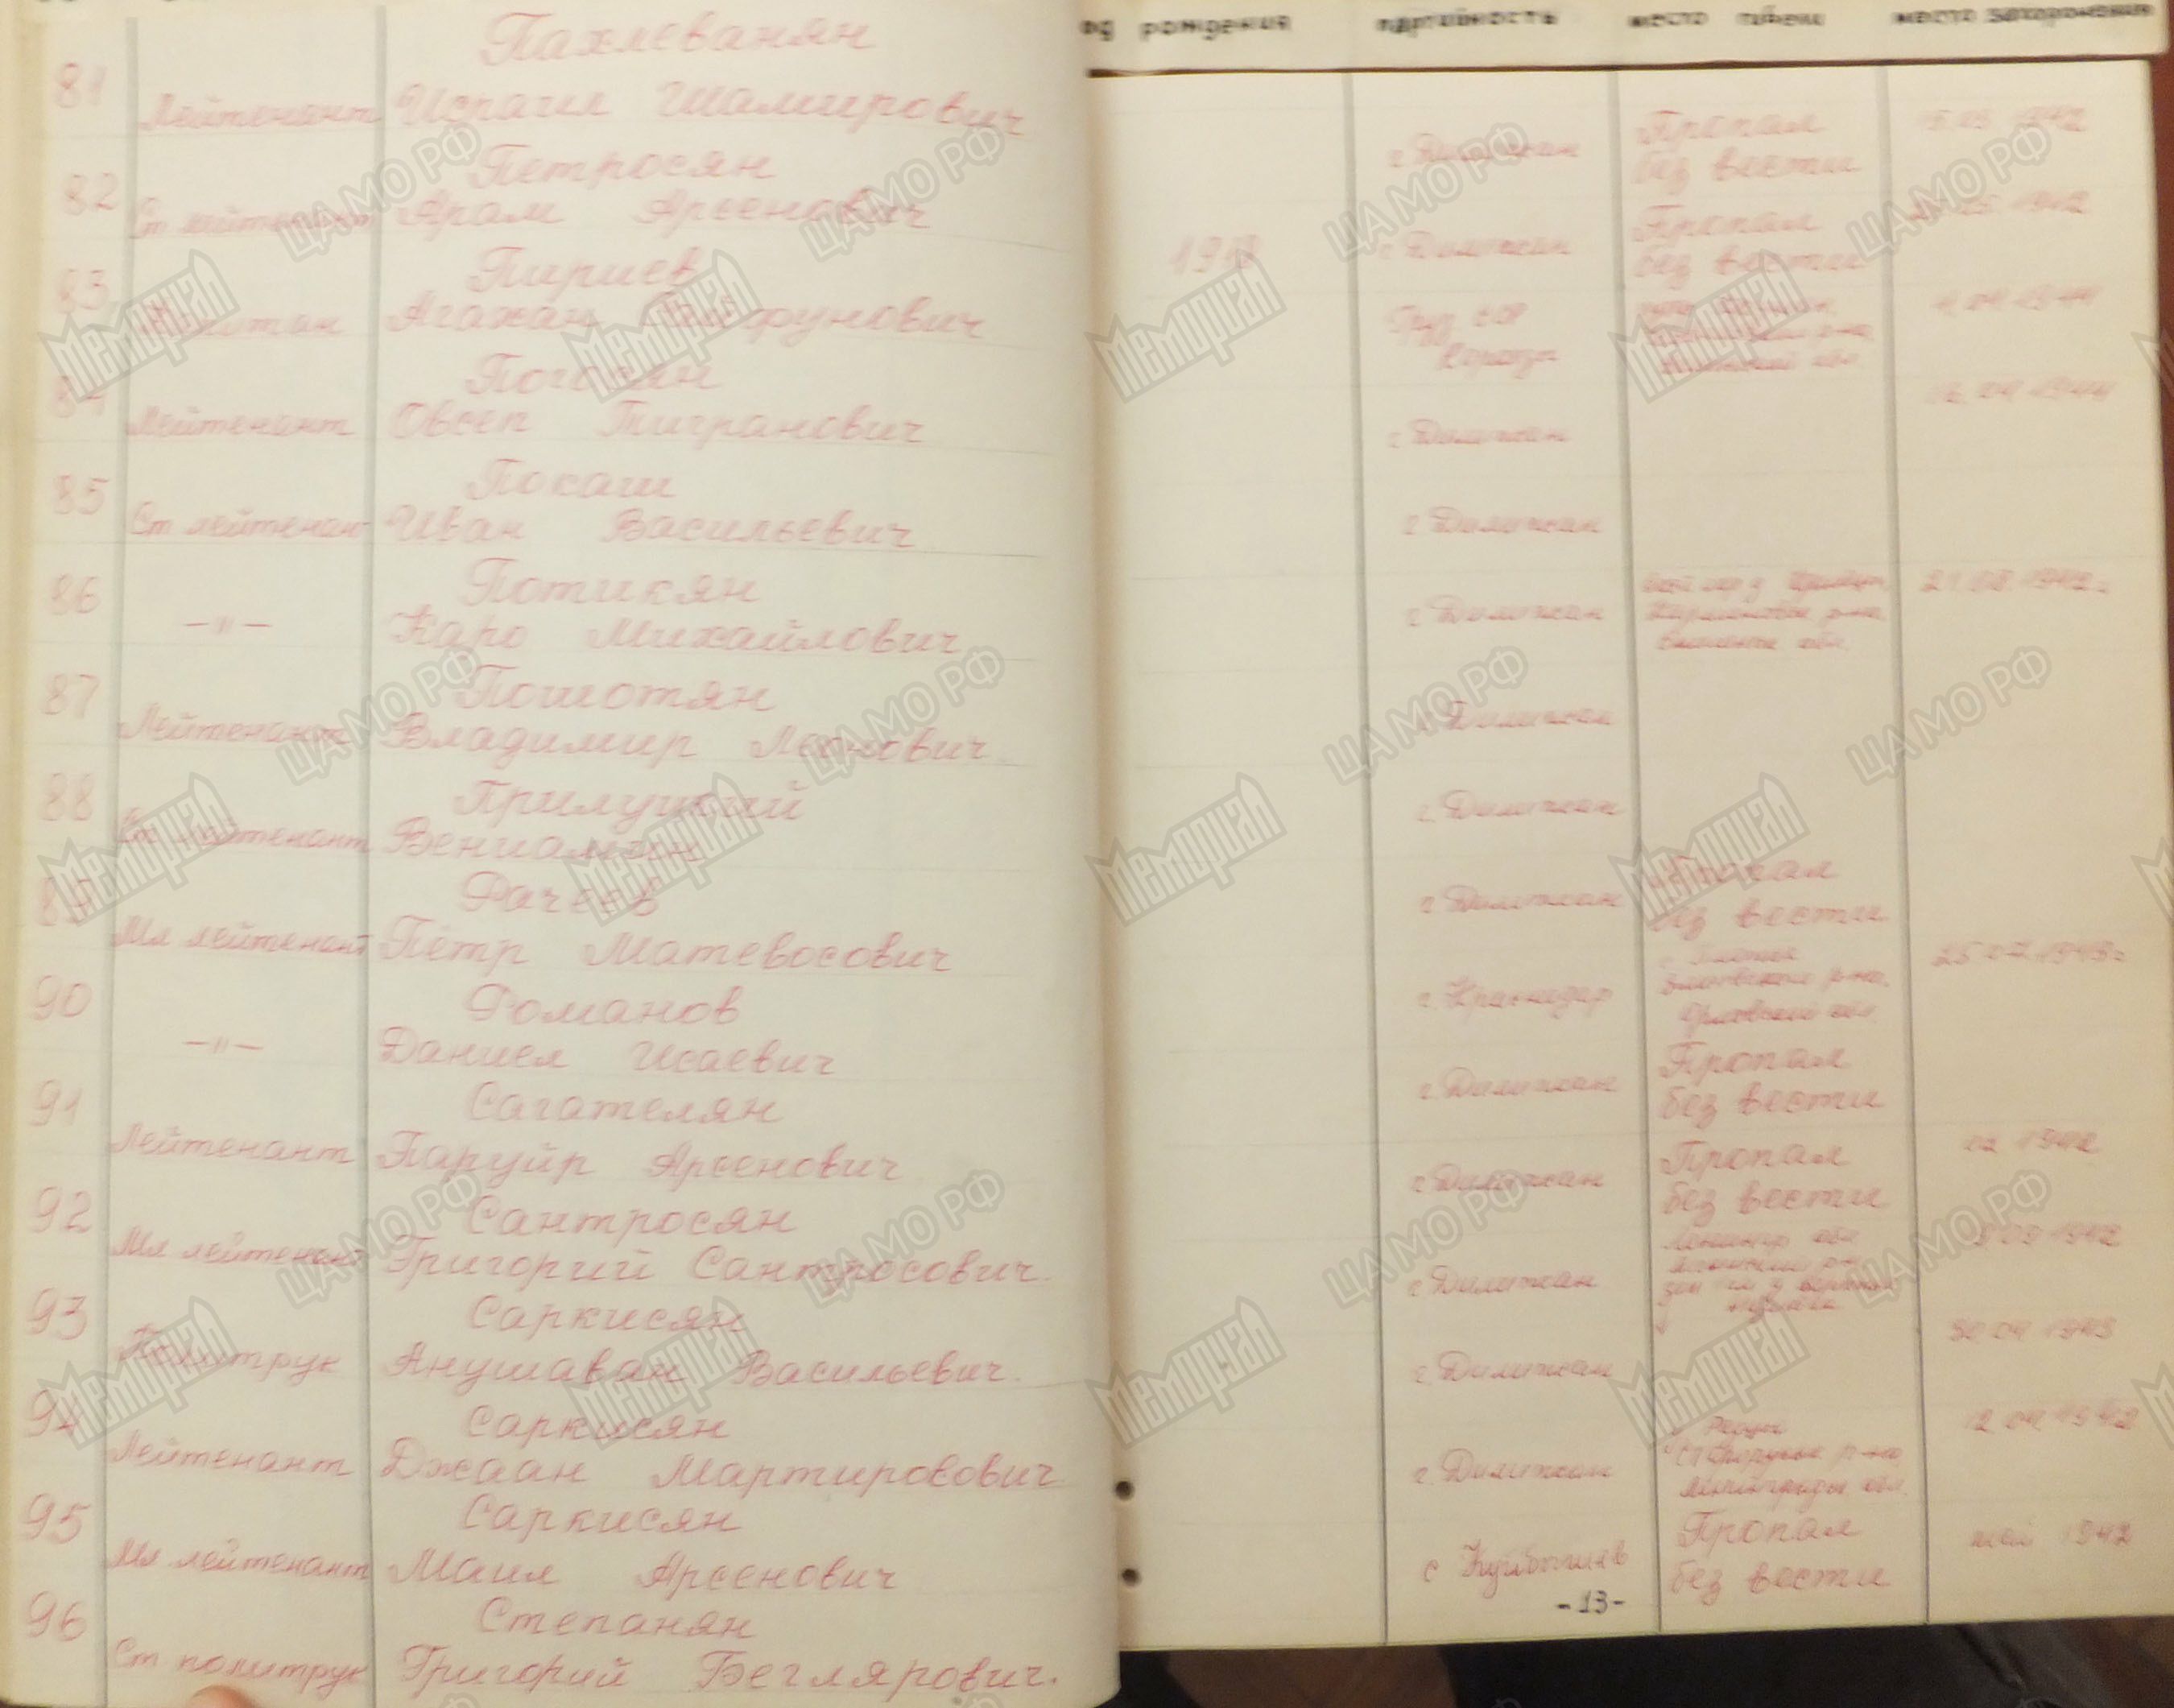 Пахлеванян
81 Лейтенант Исраил Шамирович
Петросян
82 Ст лейтенант Арам Арсенович
Пириев
83 Агахан
Погосян
84 Лейтенант Овсеп Тигранович
Покаш
85 Ст лейтенант Иван Васильевич
Потикян
86 —"— Каро Михайлович
Пошотян
87 Лейтенант Владимир Леонович
Прилуцкий
88 Ст лейтенант Вениамин
Рачеев
89 Мл лейтенант Пётр Матевосович
Романов
90 —"— Даниел Исаевич
Сагателян
91 Лейтенант Паруйр Арсенович
Сантросян
92 Мл лейтенант Григорий Сантросович.
Саркисян
93 Политрук Анушаван Васильевич.
Саркисян
94 Лейтенант Джаан Мартиросович
Саркисян
95 Мл лейтенант Маил Арсенович
Степанян
96 Ст политрук Григорий Беглярович.
од рождения партийность место гибели место захоронения
г Дилижан Пропал
без вести
г Дилижан Пропал 1942
без вести
Груз. ССР
г Дилижан
г Дилижан
г Дилижан 21.08.1942г.
г Дилижан
г Дилижан
г Дилижан Пропал
без вести
г. Краснодар 25 07 1943г
Орловской обл
г Дилижан Пропал
без вести
г Дилижан Пропал 02 1942
без вести
г Дилижан 09 1942
г Дилижан 30 04 1943
г. Дилижан 12 04 1942
Ленинграды обл.
с Куйбышев Пропал май 1942
без вести
-13-
Мемориал
ЦАМО РФ